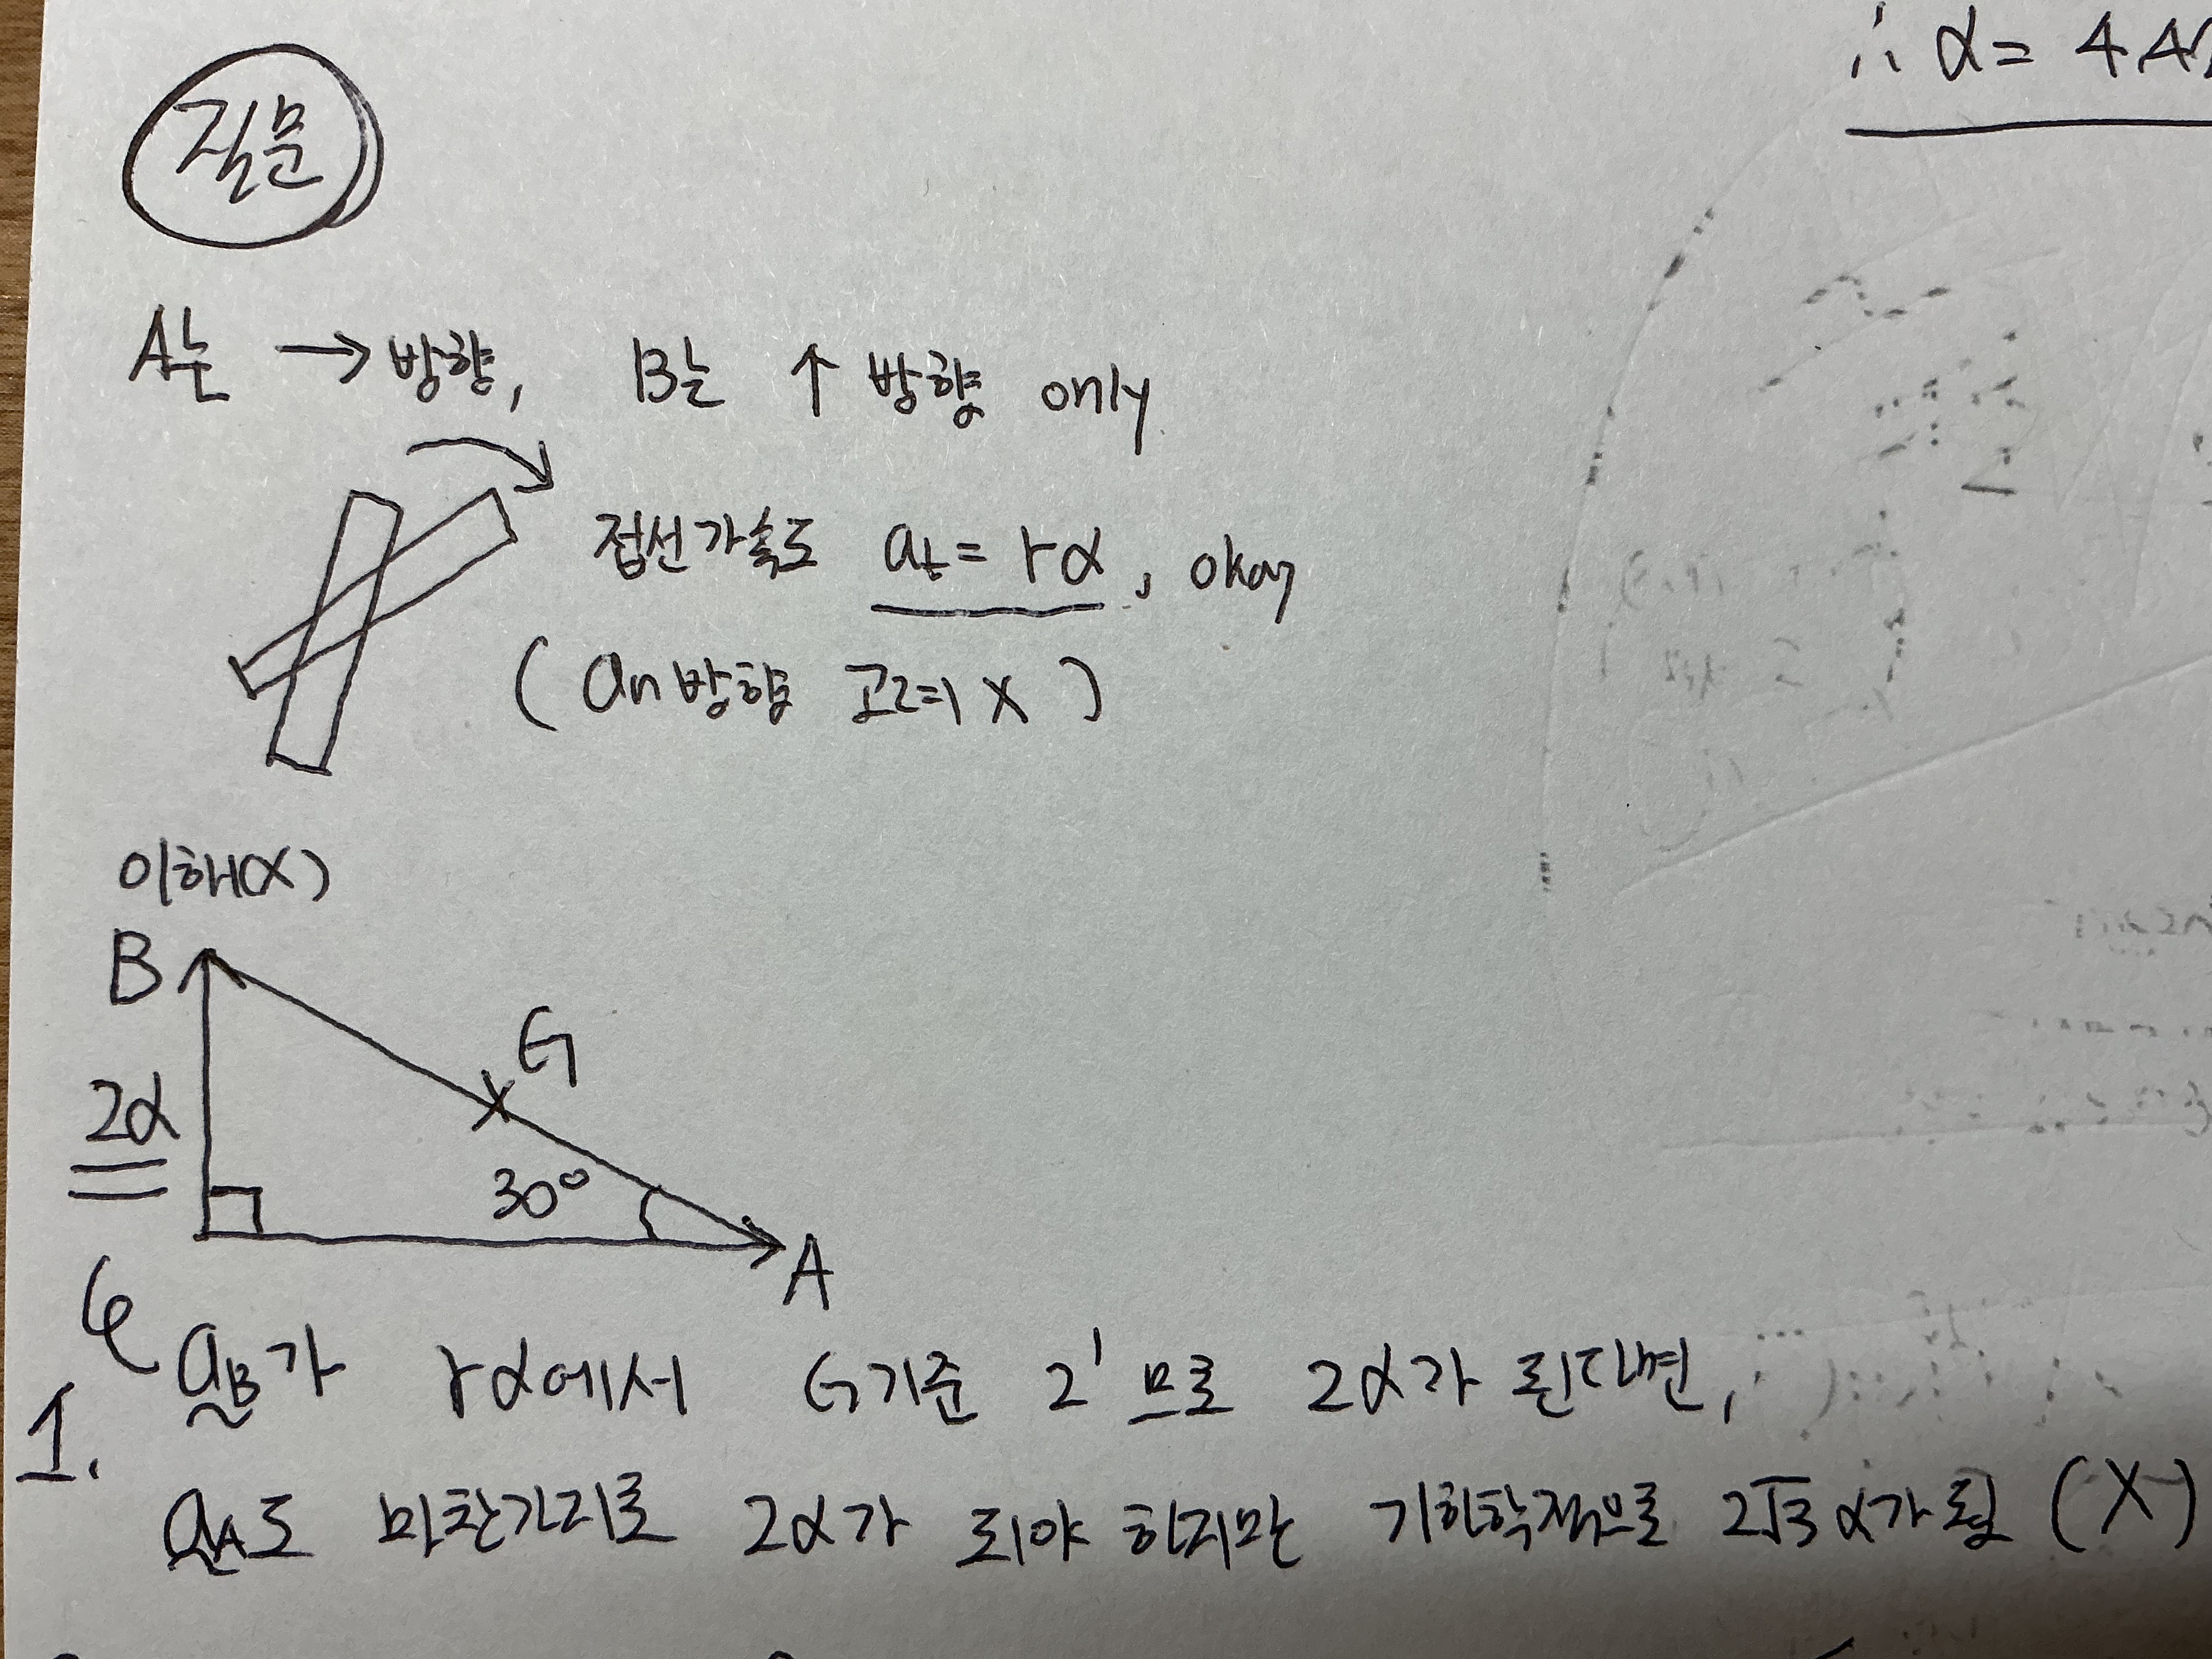 ∴ α = 4.4
질문
A는 → 방향, B는 ↑ 방향 only
접선가속도 at = rα, okay
(an방향 고려 X)
이해(X)
B
G
2α
30°
A
aB가 rα에서 G기준 2' 므로 2α가 된다면,
1.
aA도 마찬가지로 2α가 되야 하지만 기하학적으로 2√3 α가 됨 (X)